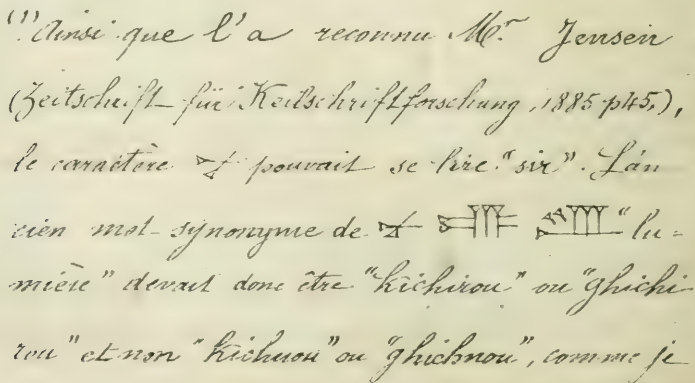 (1) Ainsi que l'a reconnu Mr. Jensen
(Zeitschrift für Keilschriftforschung, 1885 p45,),
le caractère pouvait se lire "sir". L'an
cien mot synonyme de "lu-
mière" devait donc être "kichirou" ou "ghichi
rou" et non "kichnou" ou "ghichnou", comme je